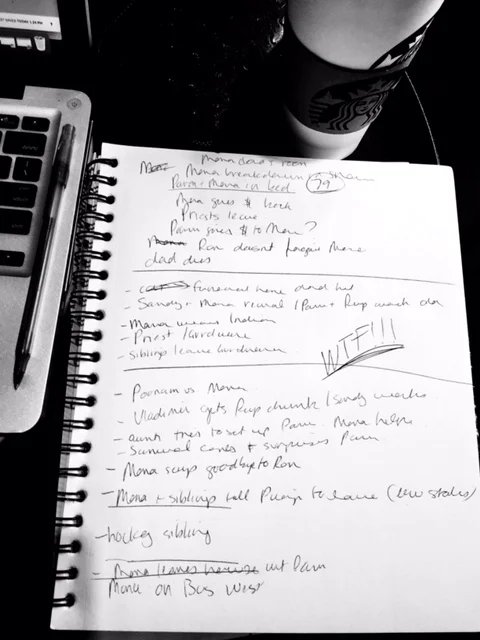 Mona
Mona breakdown
Parm + Mona in bed 7-9
Mona gives $ back
Priests leave
Parm gives $ to Mona?
Ron doesnt forgive Mona
dad dies
- funeral home dad
- Sandy + Mona / Parm + Rup
- Mona wears Indian
- Priest / Gurdwara
- siblings leave Gurdwara
WTF!!!
- Poonam vs Mona
- Vladimir gets Rup drunk / Sandy
- aunt tries to set up Parm. Mona helps
- comes + surprises Parm
- Mona says goodbye to Ron
- Mona + siblings tell to leave (low stakes)
- hockey sibling
- Mona leaves house w/ Parm
Mona on Bus West